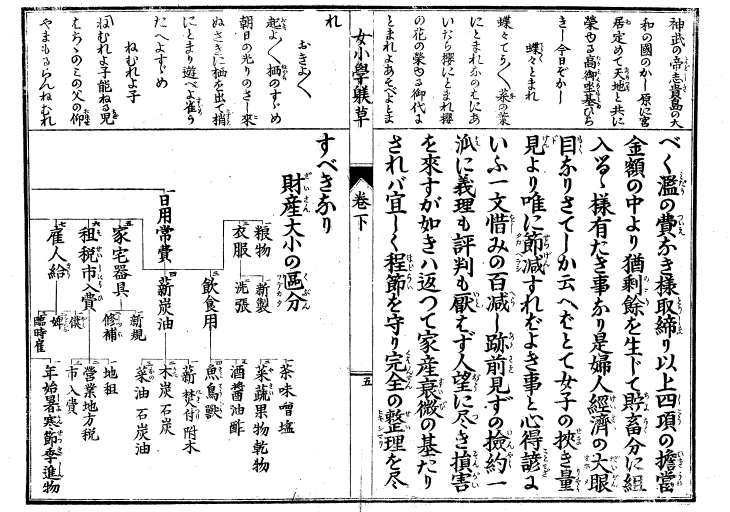 神武の帝志貴島の大
和の國のかし原に宮
居定めて天地と共に
榮ゆる高御坐基ひら
きし今日ぞかし
蝶々とまれ
蝶々てふ〱菜の葉
にとまれなのはにあ
いたら櫻にとまれ櫻
の花の榮ゆる御代に
とまれよあそべよとま
べく濫の費なき様取締り以上四項の擔當
金額の中より猶剩餘を生じて貯畜分に組
入るゝ様有たき事なり是婦人經濟の大眼
目なりさてしか云へばとて女子の挾き量
見より唯に節減すればよき事と心得諺に
いふ一文惜みの百減し跡前見ずの撿約一
派に義理も評判も厭はず人望に尽き損害
を來すが如きハ返つて家産衰微の基たり
されバ宜しく程節を守り完全の整理を尽
女小學躾草
卷下
五
れ
おきよ〱
起よ〱栖のすゞめ
朝日の光りのさし來
ぬさきに栖を出て梢
にとまり遊べよ雀う
たへよすゞめ
ねむれよ子
ねむれよ子能ねる兒
はちゝのミの父の仰
やまもるらんねむれ
すべきなり
財産大小の區分
一日用常費
一糧物
二衣服
一新製
二洗張
三飲食用
一茶味噌塩
二菜蔬果物乾物
三酒醬油酢
四魚鳥獸
四薪炭油
一薪焚付附木
二木炭石炭
三菜油石炭油
五家宅器具
一新規
二修補
六租税市入費
一地租
二營業地方税
三市入費
七雇人給
一僕
二婢
三臨時雇
年始暑寒節季進物